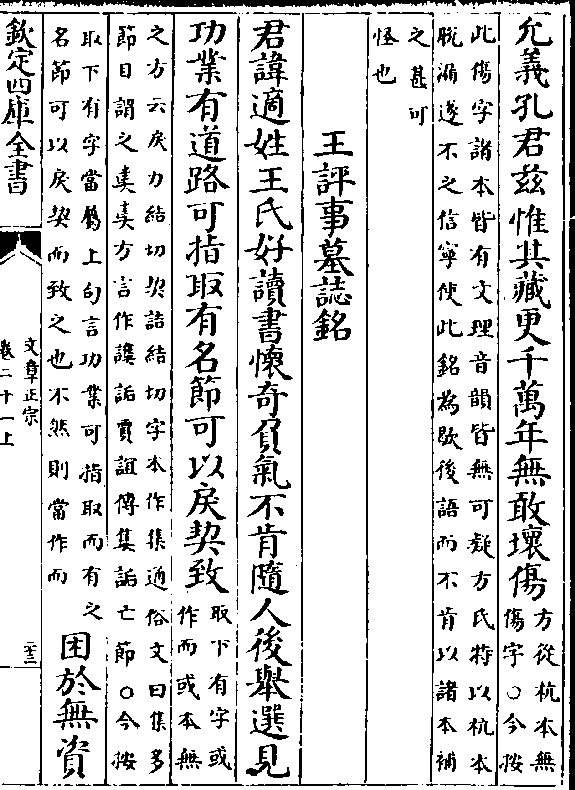 允義孔君茲惟其藏更千萬年無敢壞傷
方從杭本無
傷字○今按
此傷字諸本皆有文理音韻皆無可疑方氏特以杭本
脫漏遂不之信寧使此銘為歇後語而不肯以諸本補
之甚可
怪也
王評事墓誌銘
君諱適姓王氏好讀書懷奇負氣不肯隨人後舉選見
功業有道路可指取有名節可以戾契致
取下有字或
作而或本無
之方云戾力結切契詰結切字本作集通俗文曰集多
節目謂之奊奊方言作謨詬賈誼傳集詬亡節○今按
取下有字當屬上句言功業可指取而有之
名節可以戾契而致之也不然則當作而
困於無資
欽定四庫全書
文章正宗
卷二十一上